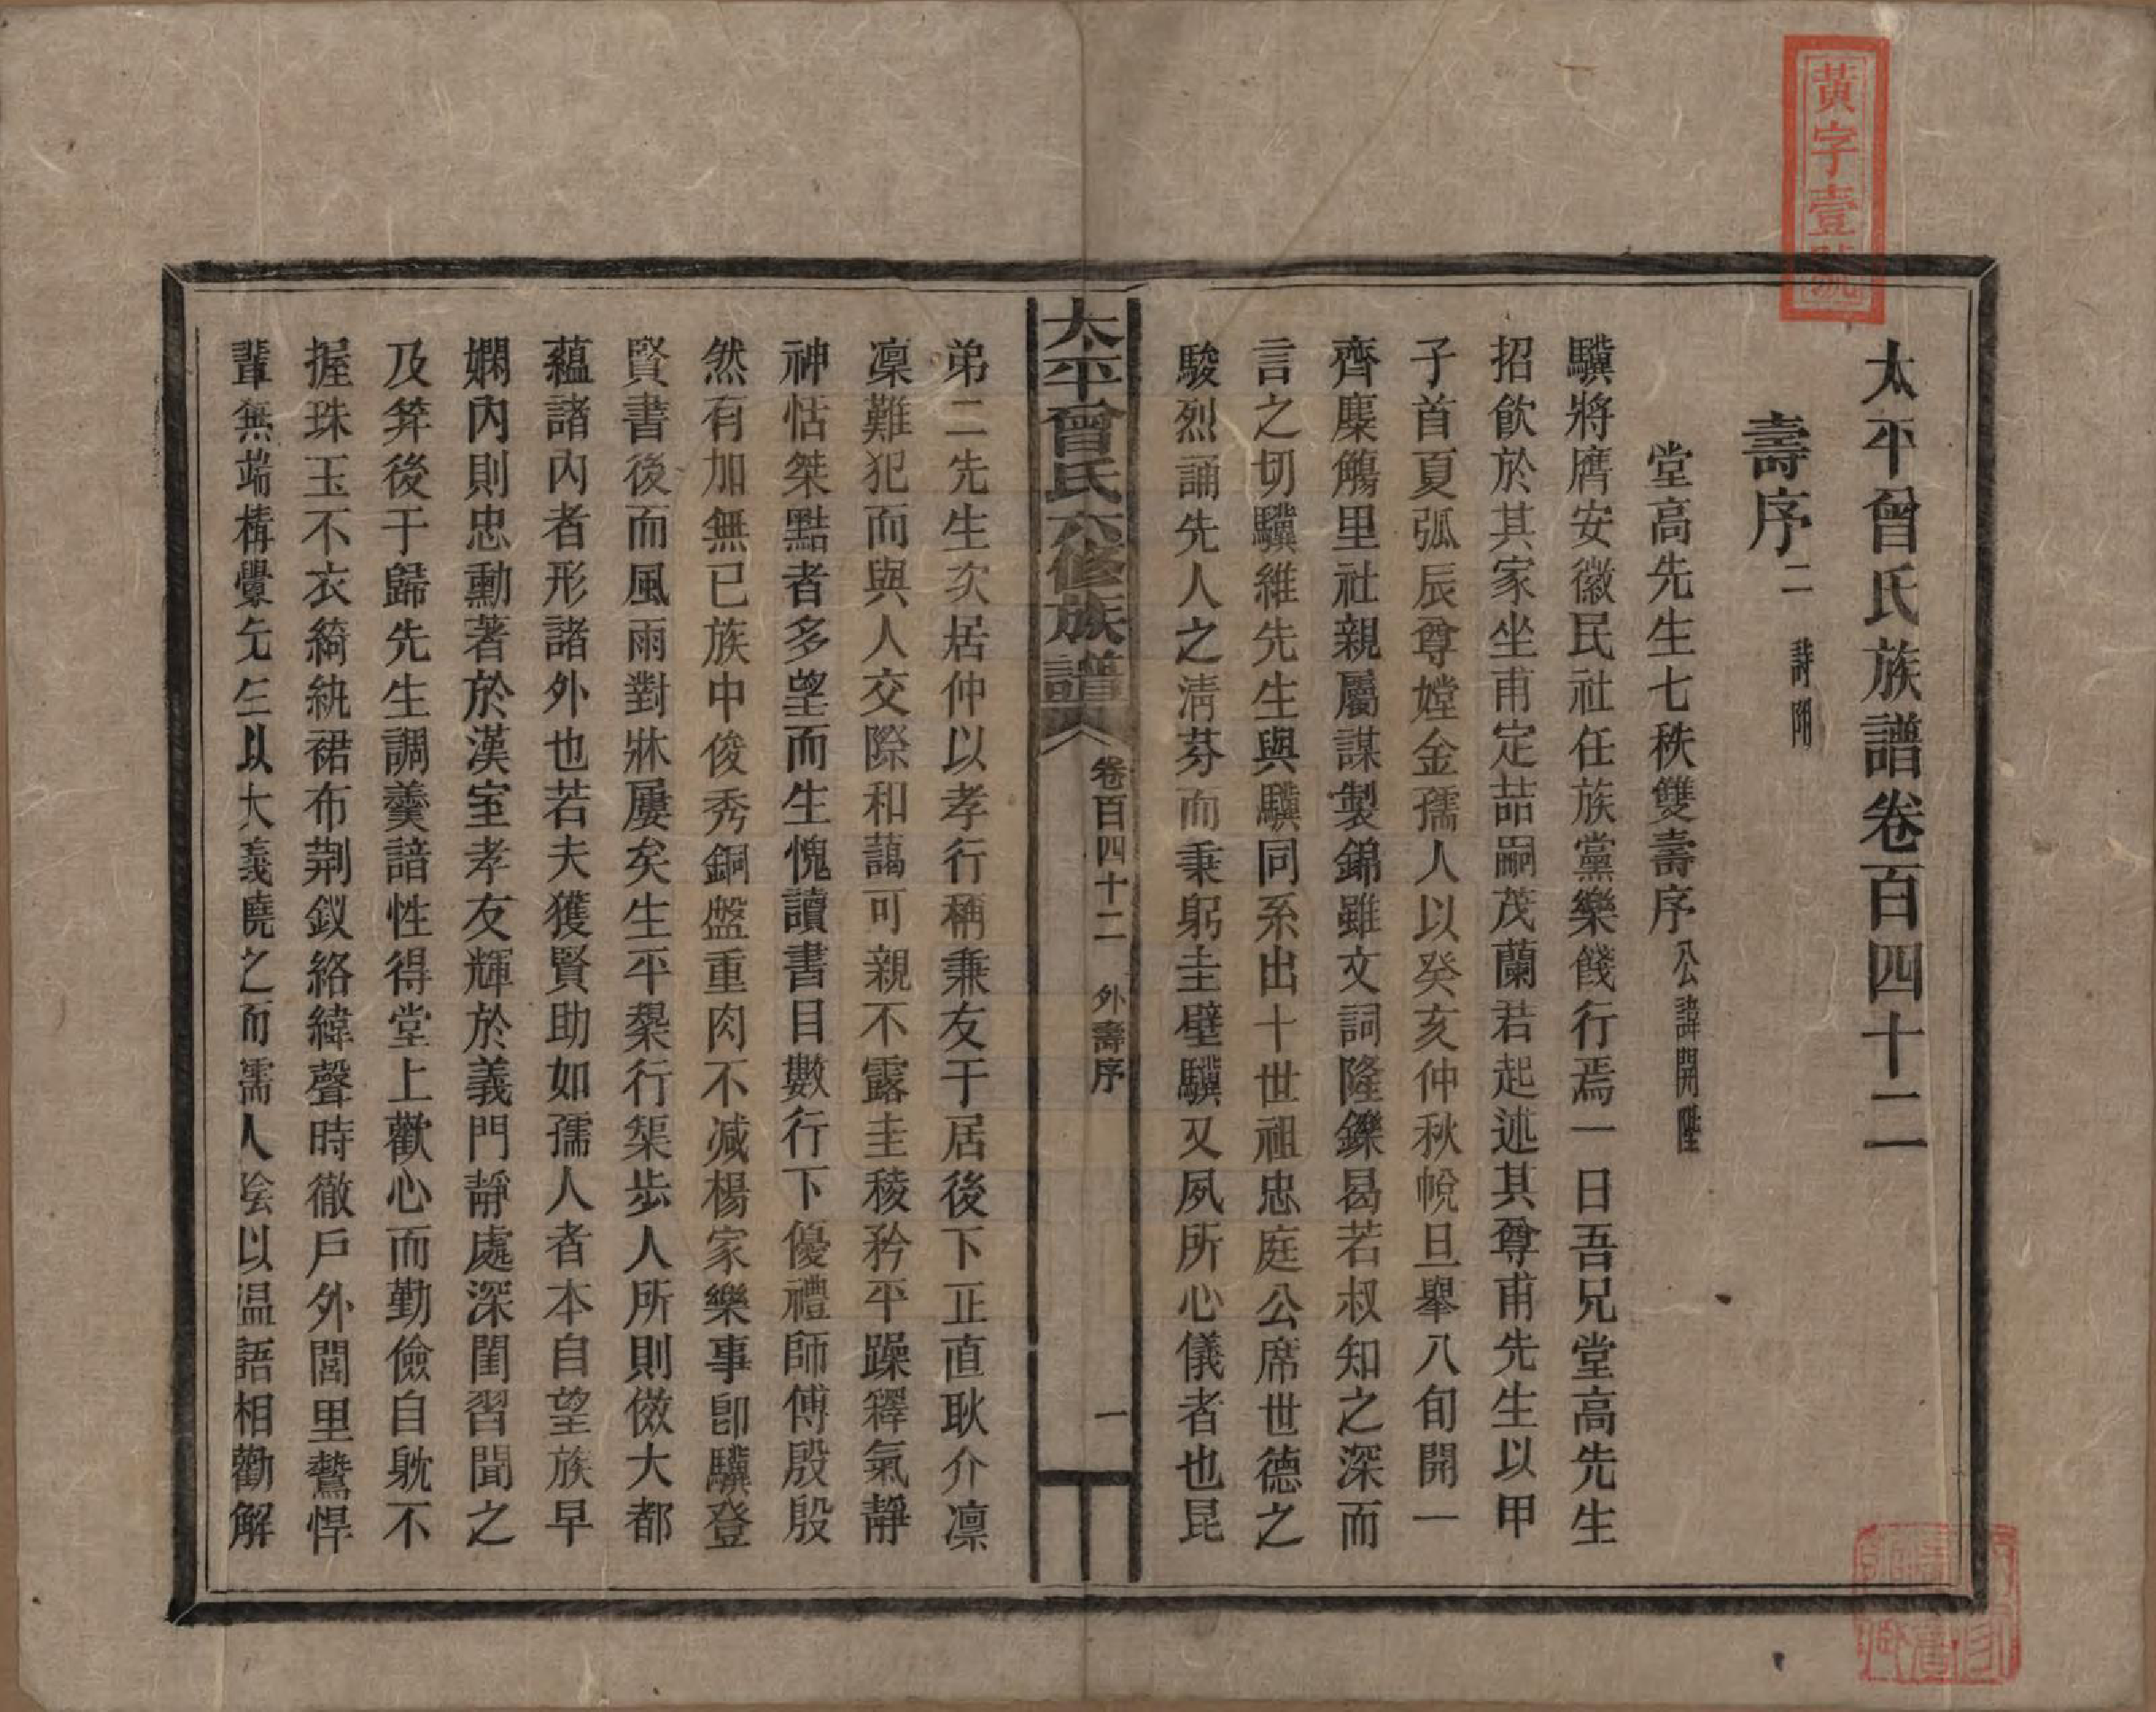 黃字壹號
太平曾氏族譜卷百四十二
壽序二 詩附
堂高先生七秩雙壽序 公諱開陞
驥將膺安徽民社任族黨樂餞行焉一日吾兄堂高先生
招飲於其家坐甫定喆嗣茂蘭君起述其尊甫先生以甲
子首夏弧辰尊嫂金孺人以癸亥仲秋帨旦舉八旬開一
齊麋觴里社親屬謀製錦雖文詞隆鑠曷若叔知之深而
言之切驥維先生與驥同系出十世祖忠庭公席世德之
駿烈誦先人之清芬而秉躬圭璧驥又夙所心儀者也昆
太平曾氏六修族譜 卷百四十二 外壽序 一
弟二先生次居仲以孝行稱兼友于居後下正直耿介凛
凜難犯而與人交際和藹可親不露圭稜矜平躁釋氣靜
神恬桀黠者多望而生愧讀書目數行下優禮師傅殷殷
然有加無已族中俊秀銅盤重肉不減楊家樂事卽驥登
賢書後而風雨對牀屢矣生平榘行榘步人所則傚大都
蘊諸內者形諸外也若夫獲賢助如孺人者本自望族早
嫻內則忠勳著於漢室孝友輝於義門靜處深閨習聞之
及笄後于歸先生調羹諳性得堂上歡心而勤儉自躭不
握珠玉不衣綺紈裙布荆釵絡緯聲時徹戶外閭里鷙悍
輩無端構釁先生以大義曉之而孺人陰以温語相勸解